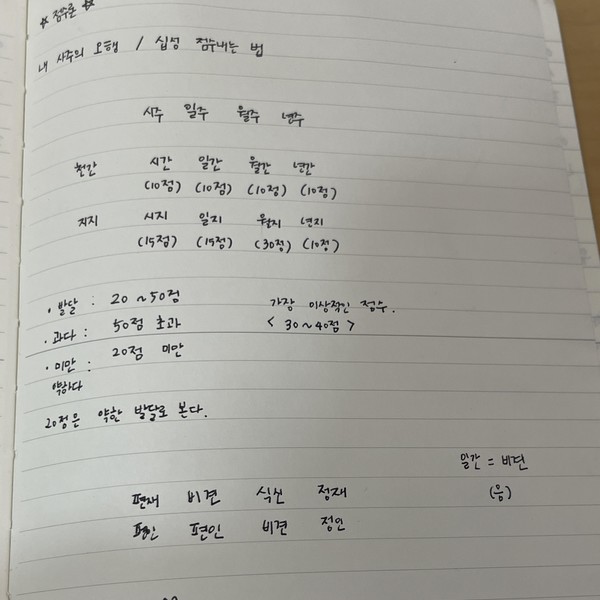 ☆ 점수론 ☆
내 사주의 오행 / 십성 점수내는 법
시주 일주 월주 년주
천간 시간 일간 월간 년간
(10점) (10점) (10점) (10점)
지지 시지 일지 월지 년지
(15점) (15점) (30점) (10점)
• 발달 : 20 ~ 50점 가장 이상적인 점수.
• 과다 : 50점 초과 < 30 ~ 40점 >
• 미만 : 20점 미만
약하다
20점은 약한 발달로 본다.
일간 = 비견
편재 비견 식신 정재 (음)
편인 편인 비견 정인